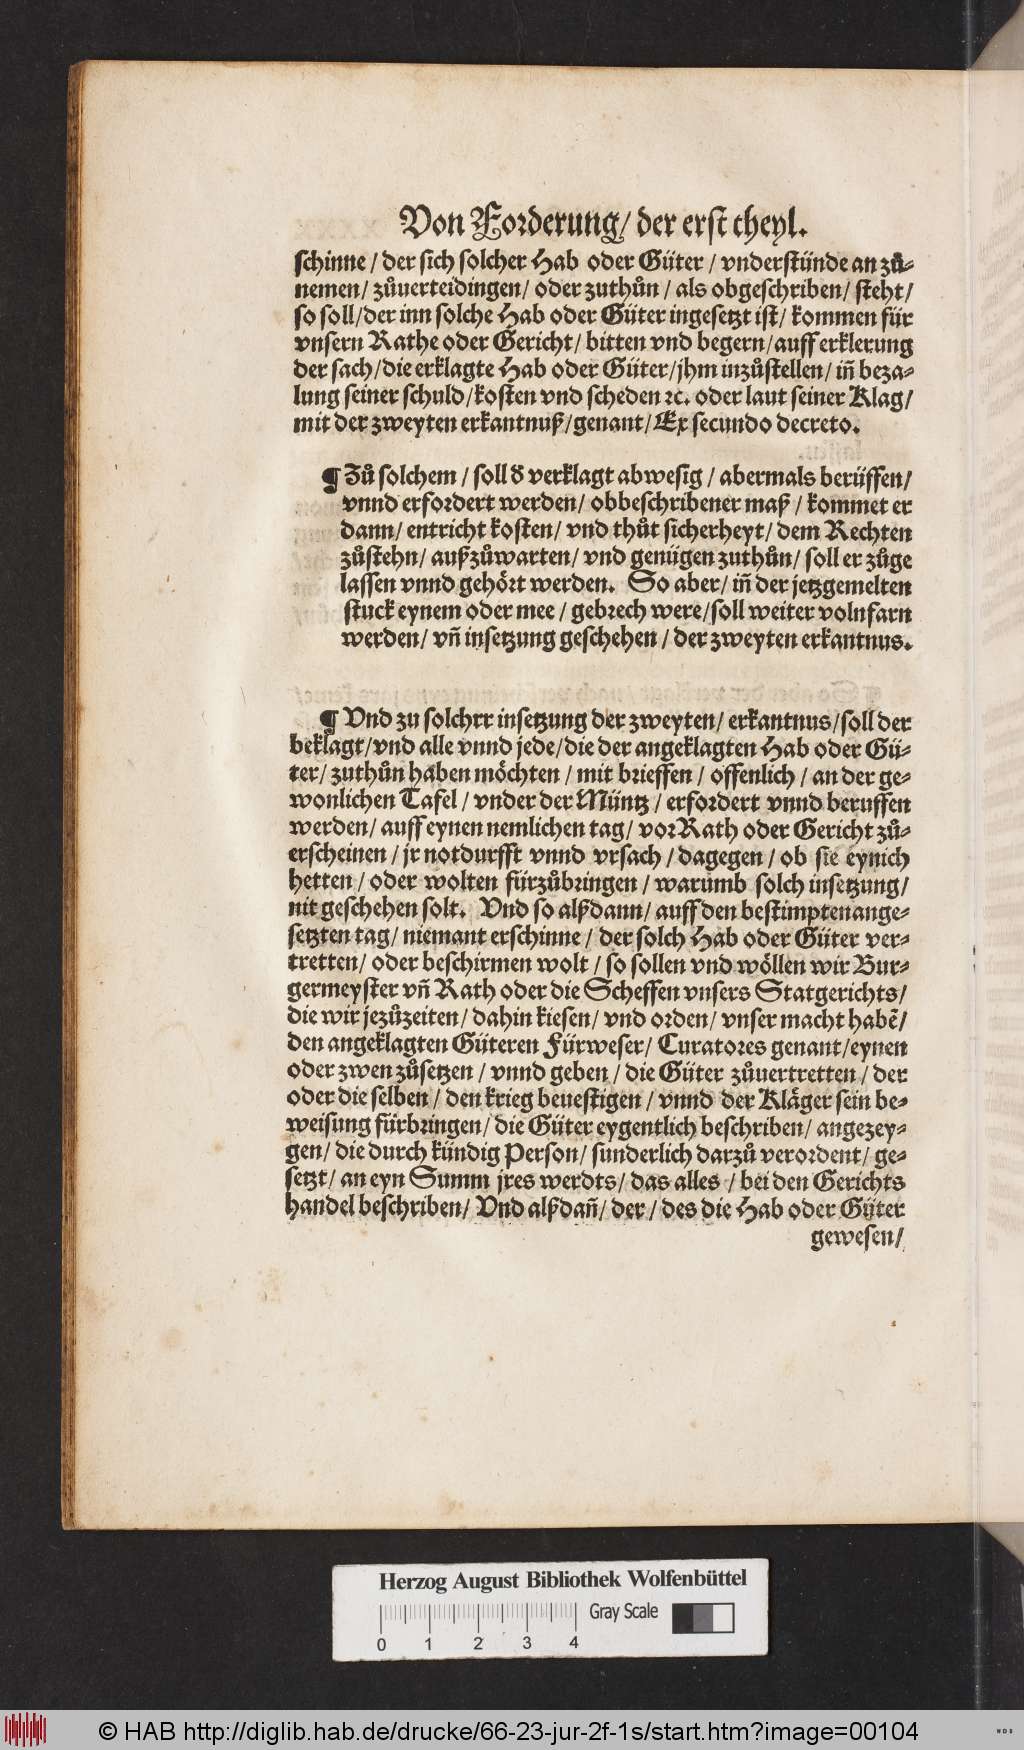 Von Forderung/ der erst theyl.
schinne / der sich solcher Hab oder Güter / vnderstünde an zů-
nemen/ zůuerteidingen/ oder zuthůn / als obgeschriben/ steht/
so soll/der inn solche Hab oder Güter ingesetzt ist/ kommen für
vnsern Rathe oder Gericht/ bitten vnd begern/auff erklerung
der sach/die erklagte Hab oder Güter/jhm inzůstellen/ in̄ beza-
lung seiner schuld/kosten vnd scheden ꝛc. oder laut seiner Klag/
mit der zweyten erkantnuß/genant/Ex secundo decreto.
¶ Zů solchem / soll d̕ verklagt abwesig / abermals berüffen/
vnnd erfordert werden/ obbeschribener maß / kommet er
dann/ entricht kosten/ vnd thůt sicherheyt/ dem Rechten
zůstehn/ außzůwarten/ vnd genügen zuthůn/ soll er zůge
lassen vnnd gehört werden. So aber/ in̄ der jetzgemelten
stuck eynem oder mee / gebrech were/soll weiter volnfarn
werden/ vn̄ insetzung geschehen / der zweyten erkantnus.
¶ Vnd zu solchrr insetzung der zweyten/ erkantnus/soll der
beklagt/vnd alle vnnd jede/die der angeklagten Hab oder Gü-
ter/ zuthůn haben möchten / mit brieffen / offenlich / an der ge-
wonlichen Tafel / vnder der Müntz / erfordert vnnd beruffen
werden/ auff eynen nemlichen tag/ vor Rath oder Gericht zů-
erscheinen / jr notdurfft vnnd vrsach / dagegen / ob sie eynich
hetten / oder wolten fürzůbringen / warumb solch insetzung/
nit geschehen solt. Vnd so alßdann/ auff den bestimpten ange-
setzten tag/ niemant erschinne / der solch Hab oder Güter ver-
tretten/ oder beschirmen wolt / so sollen vnd wöllen wir Bur-
germeyster vn̄ Rath oder die Scheffen vnsers Statgerichts/
die wir jezůzeiten/ dahin kiesen/ vnd orden/ vnser macht habē/
den angeklagten Güteren Fürweser/ Curatores genant/eynen
oder zwen zůsetzen / vnnd geben / die Güter zůuertretten / der
oder die selben / den krieg beuestigen / vnnd der Kläger sein be-
weisung fürbringen/ die Güter eygentlich beschriben/ angezey-
gen/ die durch kündig Person/ sunderlich darzů verordent/ ge-
setzt/ an eyn Summ jres werdts/ das alles / bei den Gerichts
handel beschriben/ Vnd alßdañ/ der / des die Hab oder Güter
gewesen/
Herzog August Bibliothek Wolfenbüttel
Gray Scale
0 1 2 3 4
© HAB http://diglib.hab.de/drucke/66-23-jur-2f-1s/start.htm?image=00104